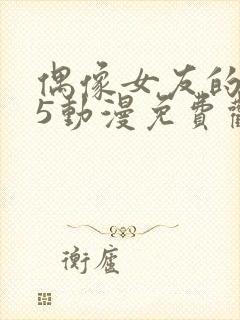 偶像女友的
5動漫免費
衡廬